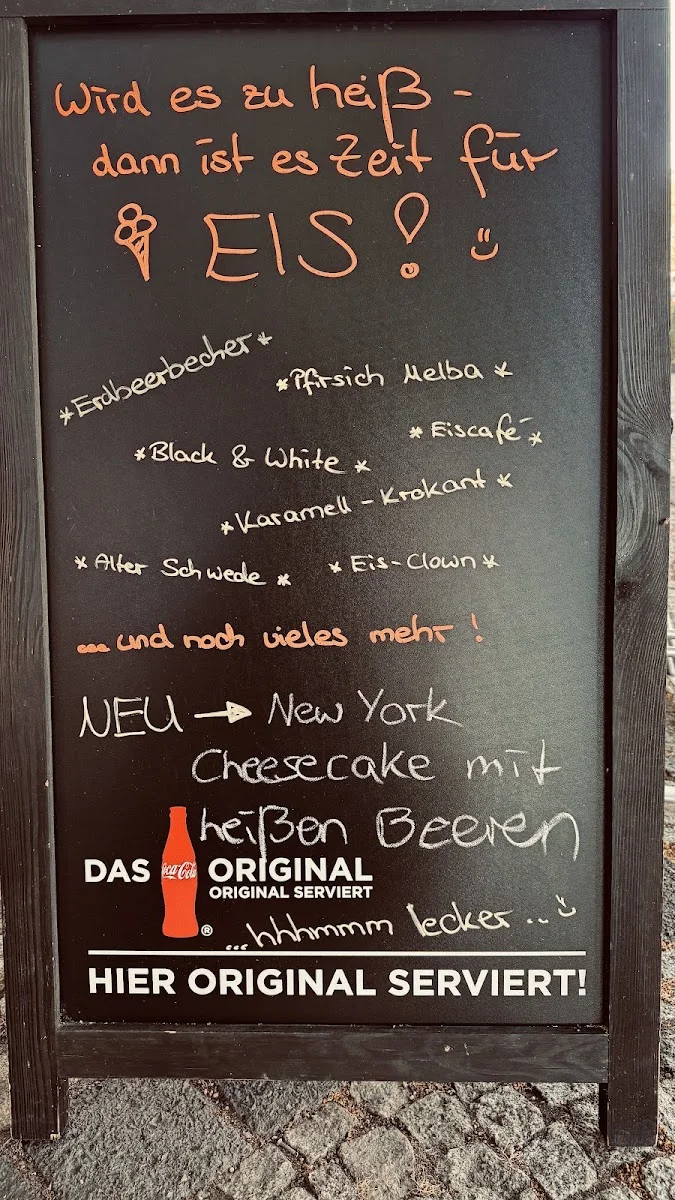 Wird es zu heiß -
dann ist es Zeit für
EIS!
*Erdbeerbecher*
*Pfirsich Melba*
*Eiscafé*
*Black & White*
*Karamell-Krokant*
*Alter Schwede*
*Eis-Clown*
...und noch vieles mehr!
NEU → New York
Cheesecake mit
heißen Beeren
DAS Coca-Cola ORIGINAL
ORIGINAL SERVIERT
®
...hhhmmm lecker...
HIER ORIGINAL SERVIERT!